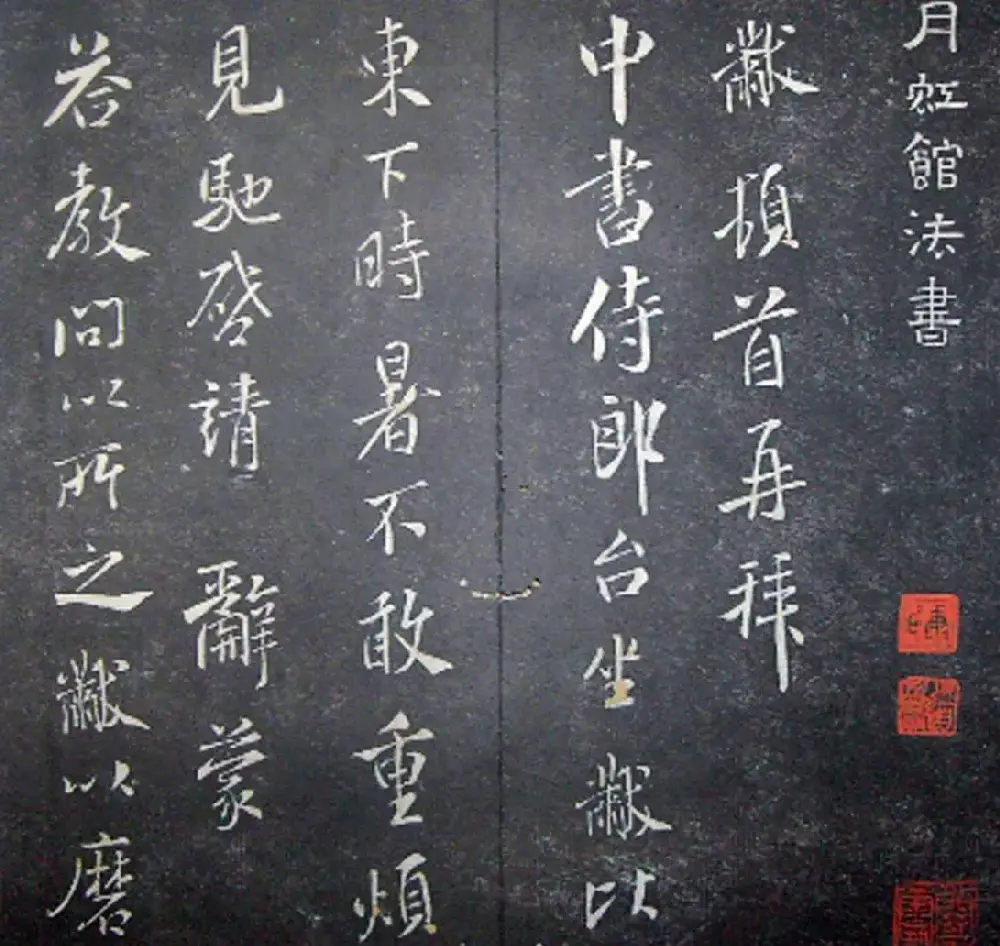 月虹館法書
黻頓首再拜
中書侍郎台坐黻比
東下時暑不敢重煩
見馳啓請 辭蒙
答教問以所之黻以磨